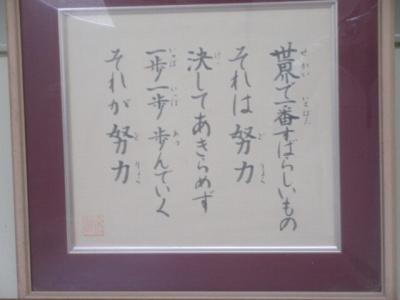 世界で一番すばらしいもの
それは努力
決してあきらめず
一歩一歩歩んでいく
それが努力